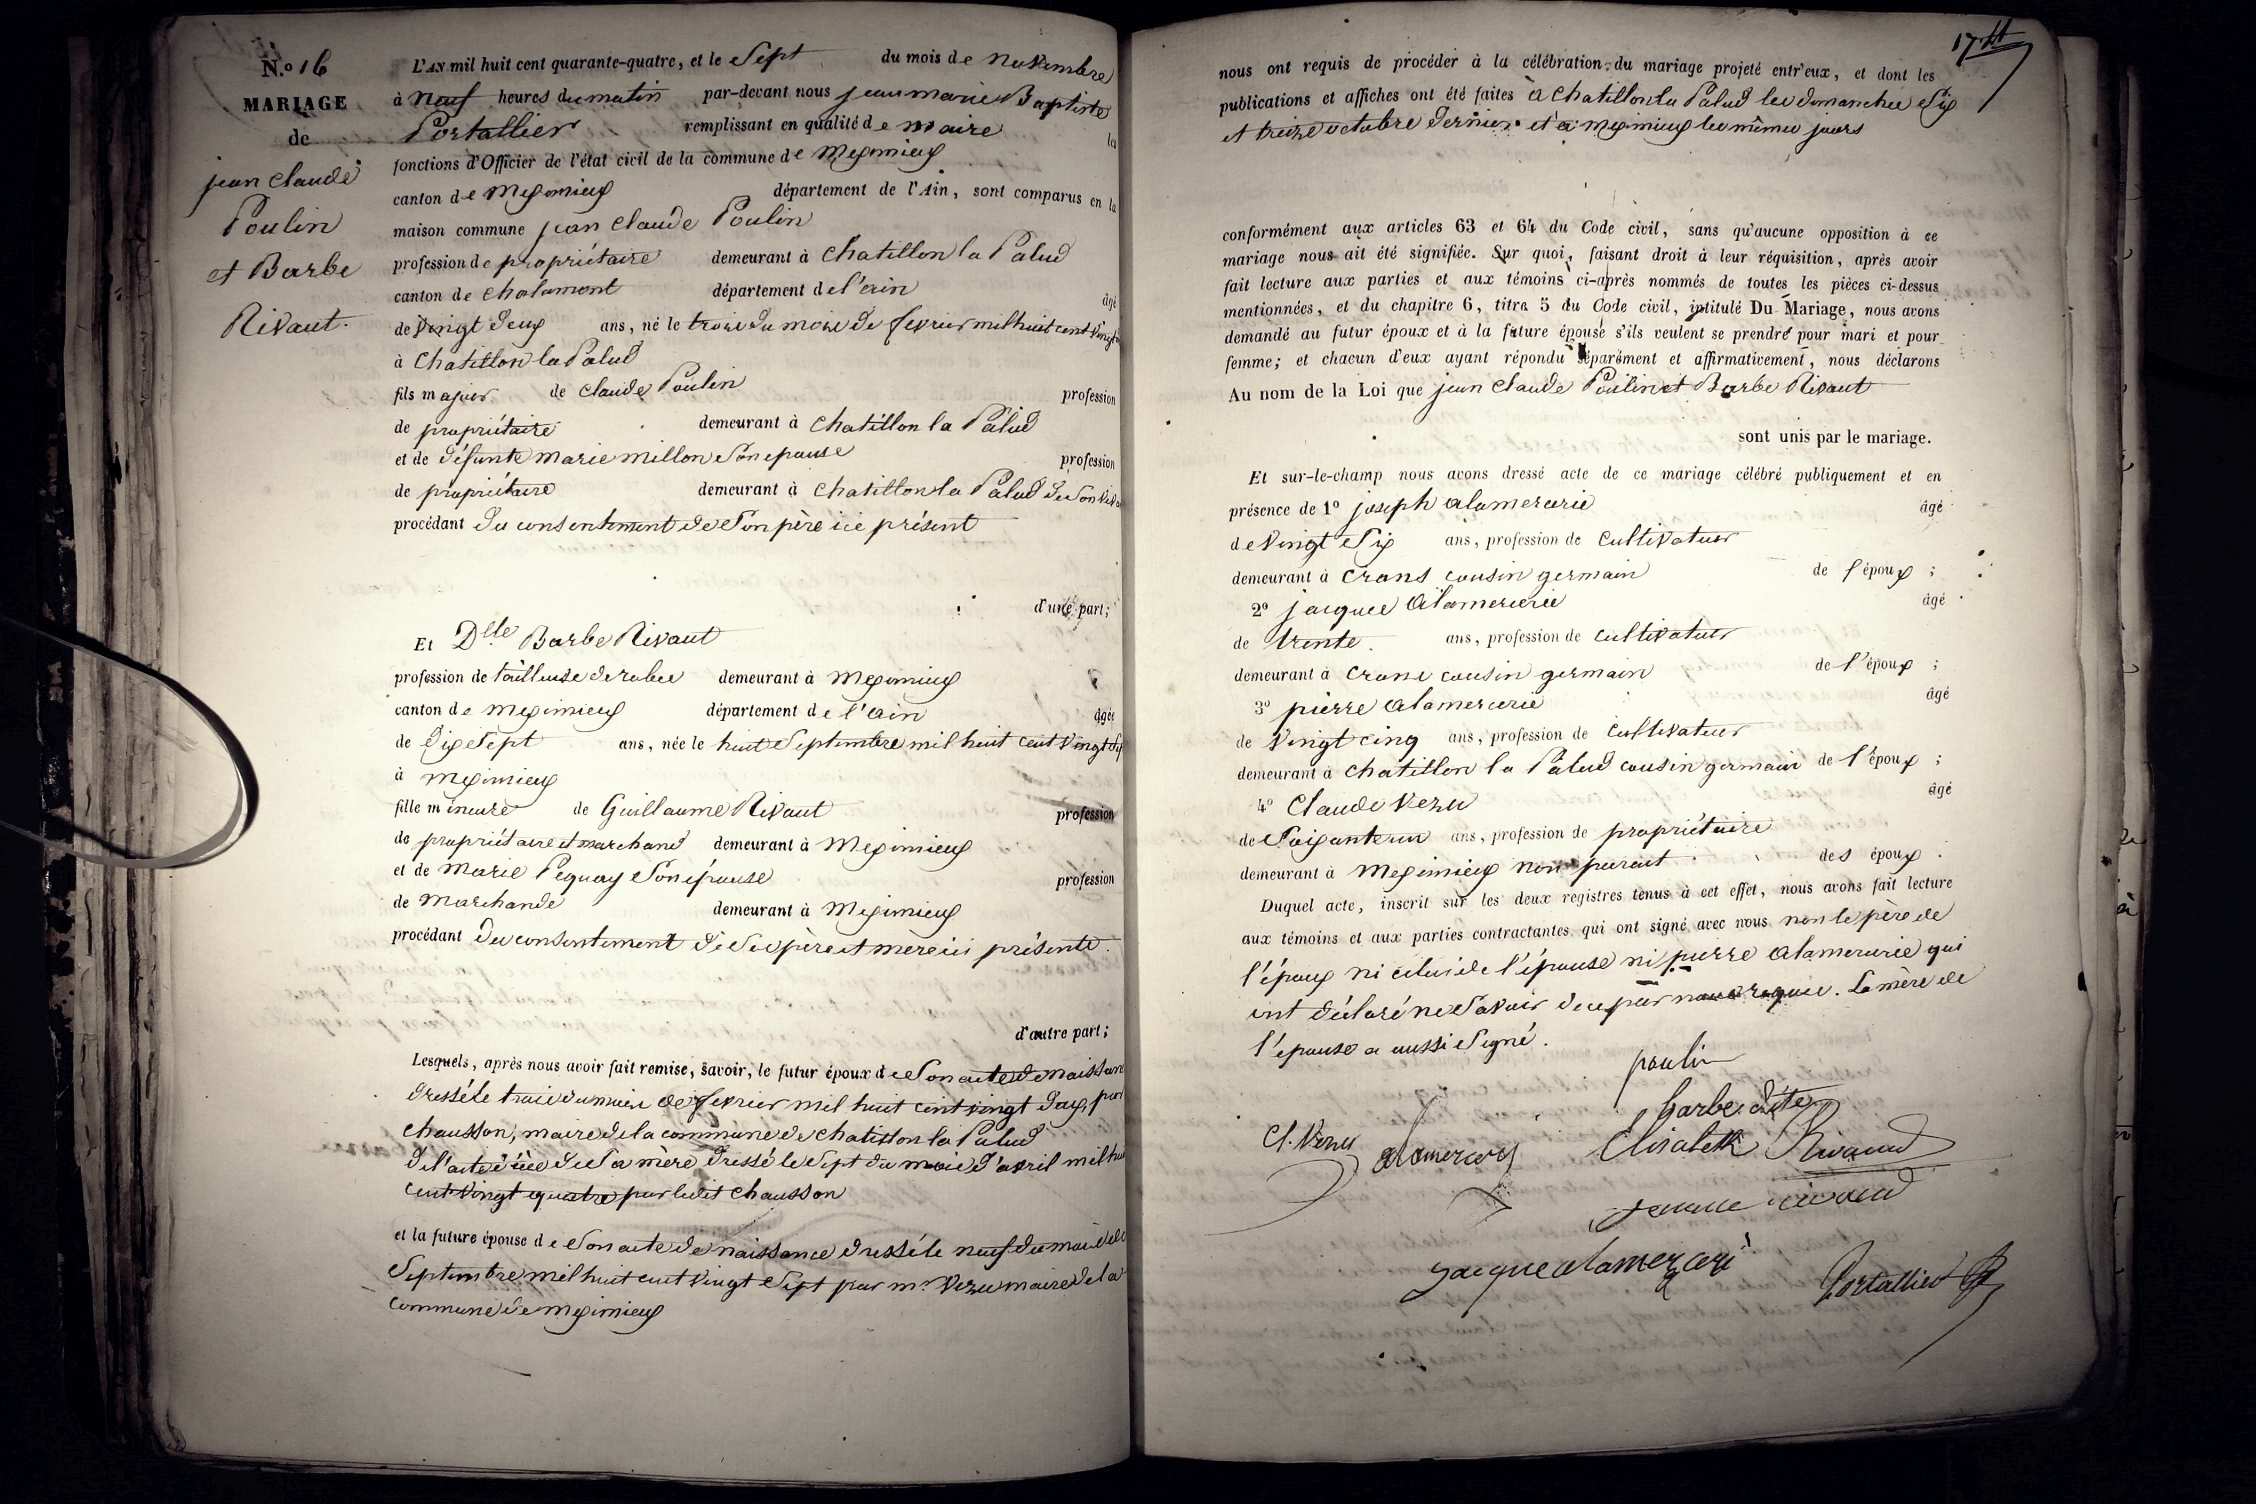 N.º 16
MARIAGE
de
jean claude
Poulin
et Barbe
Rivaut.
L'AN mil huit cent quarante-quatre, et le Sept du mois de Novembre
à Neuf heures du matin par-devant nous jean marie Baptiste
Portallier remplissant en qualité de maire la
fonctions d'Officier de l'état civil de la commune de Meximieux
canton de Meximieux département de l'Ain, sont comparus en la
maison commune jean claude Poulin
profession de propriétaire demeurant à chatillon la Palud
canton de chalamont département de l'ain âgé
de vingt deux ans, né le trois du mois de fevrier mil huit cent vingt
à chatillon la Palud
fils majeur de claude Poulin profession
de propriétaire demeurant à chatillon la Palud
et de défunte marie millon Son epouse profession
de propriétaire demeurant à chatillon la Palud de Son
procédant du consentement de Son père ici présent
d'une part;
Et Dlle Barbe Rivaut
profession de tailleuse de robes demeurant à Meximieux
canton de meximieux département de l'ain âgée
de Dix Sept ans, née le huit Septembre mil huit cent vingt
à meximieux
fille mineure de Guillaume Rivaut profession
de propriétaire et marchand demeurant à Meximieux
et de Marie Pequay Son épouse profession
de Marchande demeurant à Meximieux
procédant du consentement de Ses père et mère ici présents
d'autre part;
Lesquels, après nous avoir fait remise, savoir, le futur époux de Son acte de naissance
dressé le trois du mois de fevrier mil huit cent vingt deux, par
chausson, maire de la commune de chatillon la Palud
de l'acte de décès de Sa mère dressé le Sept du mois d'avril mil huit
cent vingt quatre par ledit chausson
et la future épouse de Son acte de naissance dressé le neuf du mois de
Septembre mil huit cent vingt Sept par mr. Vezu maire de la
commune de meximieux
17
nous ont requis de procéder à la célébration du mariage projeté entr'eux, et dont les
publications et affiches ont été faites à chatillon la Palud les dimanches Six
et treize octobre dernier et à meximieux les mêmes jours
conformément aux articles 63 et 64 du Code civil, sans qu'aucune opposition à ce
mariage nous ait été signifiée. Sur quoi, faisant droit à leur réquisition, après avoir
fait lecture aux parties et aux témoins ci-après nommés de toutes les pièces ci-dessus
mentionnées, et du chapitre 6, titre 5 du Code civil, intitulé Du Mariage, nous avons
demandé au futur époux et à la future épouse s'ils veulent se prendre pour mari et pour
femme; et chacun d'eux ayant répondu séparément et affirmativement, nous déclarons
Au nom de la Loi que jean claude Poulin et Barbe Rivaut
sont unis par le mariage.
Et sur-le-champ nous avons dressé acte de ce mariage célébré publiquement et en
présence de 1º joseph alamercerie âgé
de vingt Six ans, profession de cultivateur
demeurant à crans cousin germain de l'époux ;
2º jacques alamercerie âgé
de trente ans, profession de cultivateur
demeurant à crans cousin germain de l'époux ;
3º pierre alamercerie âgé
de vingt cinq ans, profession de cultivateur
demeurant à chatillon la Palud cousin germain de l'époux ;
4º Claude Vezu âgé
de Soixante un ans, profession de propriétaire
demeurant à Meximieux non parent des époux .
Duquel acte, inscrit sur les deux registres tenus à cet effet, nous avons fait lecture
aux témoins et aux parties contractantes qui ont signé avec nous non le père de
l'époux ni celui de l'épouse ni pierre alamercerie qui
ont déclaré ne Savoir de ce par nous requis. La mère de
l'epouse a aussi Signé.
poulin
barbe dite
Cl. Vezu alamercery Elisabeth Rivaud
femme rivaud
Jacque alamerceri
Portallier